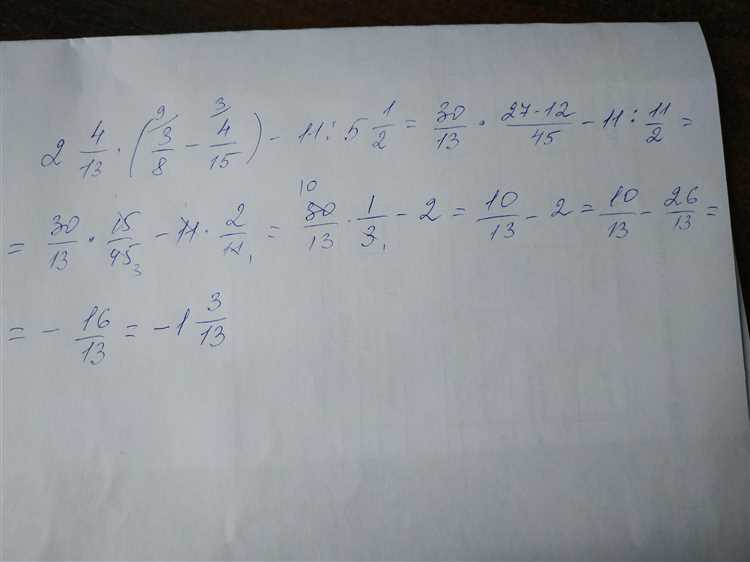 2 4/13 · (3/8 9 - 4/15 3) - 11 : 5 1/2 = 30/13 · 27-12/45 - 11 : 11/2 =
= 30/13 · 15/45 3 - 11 · 2/11 1 = 30 10/13 · 1/3 1 - 2 = 10/13 - 2 = 10/13 - 26/13 =
= - 16/13 = -1 3/13